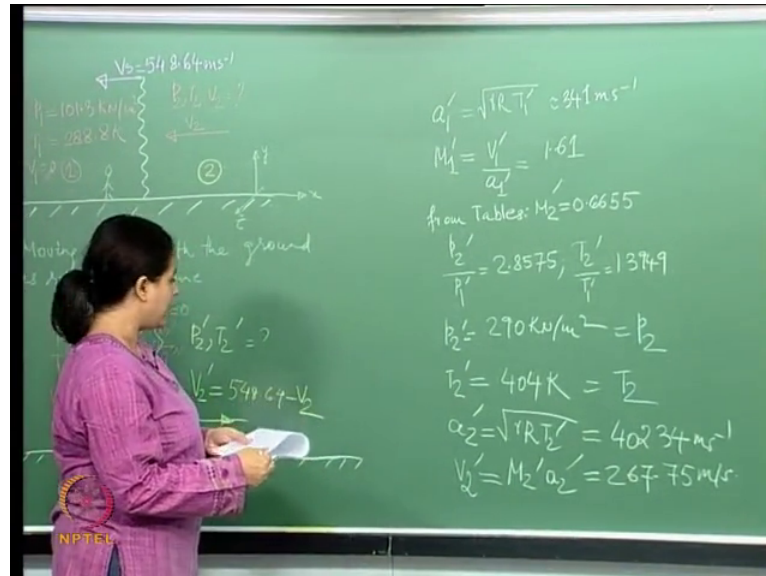 Vs=548.64ms⁻¹
P₁=101.3KN/m²
T₁=288.8K
P₂,T₂,V₂=?
V₂
①
②
y
x
Moving
th the ground
=0
P₂',T₂'=?
V₂'=548.64-V₂
a₁'=√γRT₁' ≈341ms⁻¹
M₁'=V₁'/a₁'=1.61
from Tables: M₂'=0.6655
P₂'/P₁'=2.8575; T₂'/T₁'=1.3949
P₂'=290KN/m²=P₂
T₂'=404K=T₂
a₂'=√γRT₂'=402.34ms⁻¹
V₂'=M₂'a₂'=267.75m/s.
NPTEL